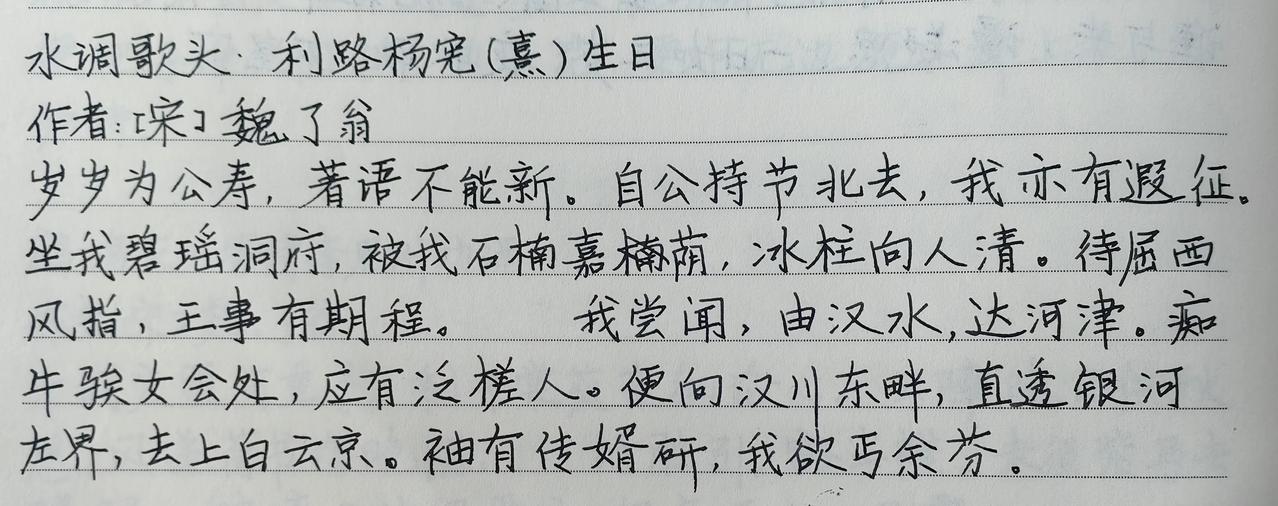 水调歌头·利路杨宪(熹)生日
作者:[宋]魏了翁
岁岁为公寿,著语不能新。自公持节北去,我亦有遐征。
坐我碧瑶洞府,被我石楠嘉樾荫,冰柱向人清。待屈西
风指,王事有期程。 我尝闻,由汉水,达河津。痴
牛騃女会处,应有泛槎人。便向汉川东畔,直透银河
左界,去上白云京。袖有传婿研,我欲丐余芬。